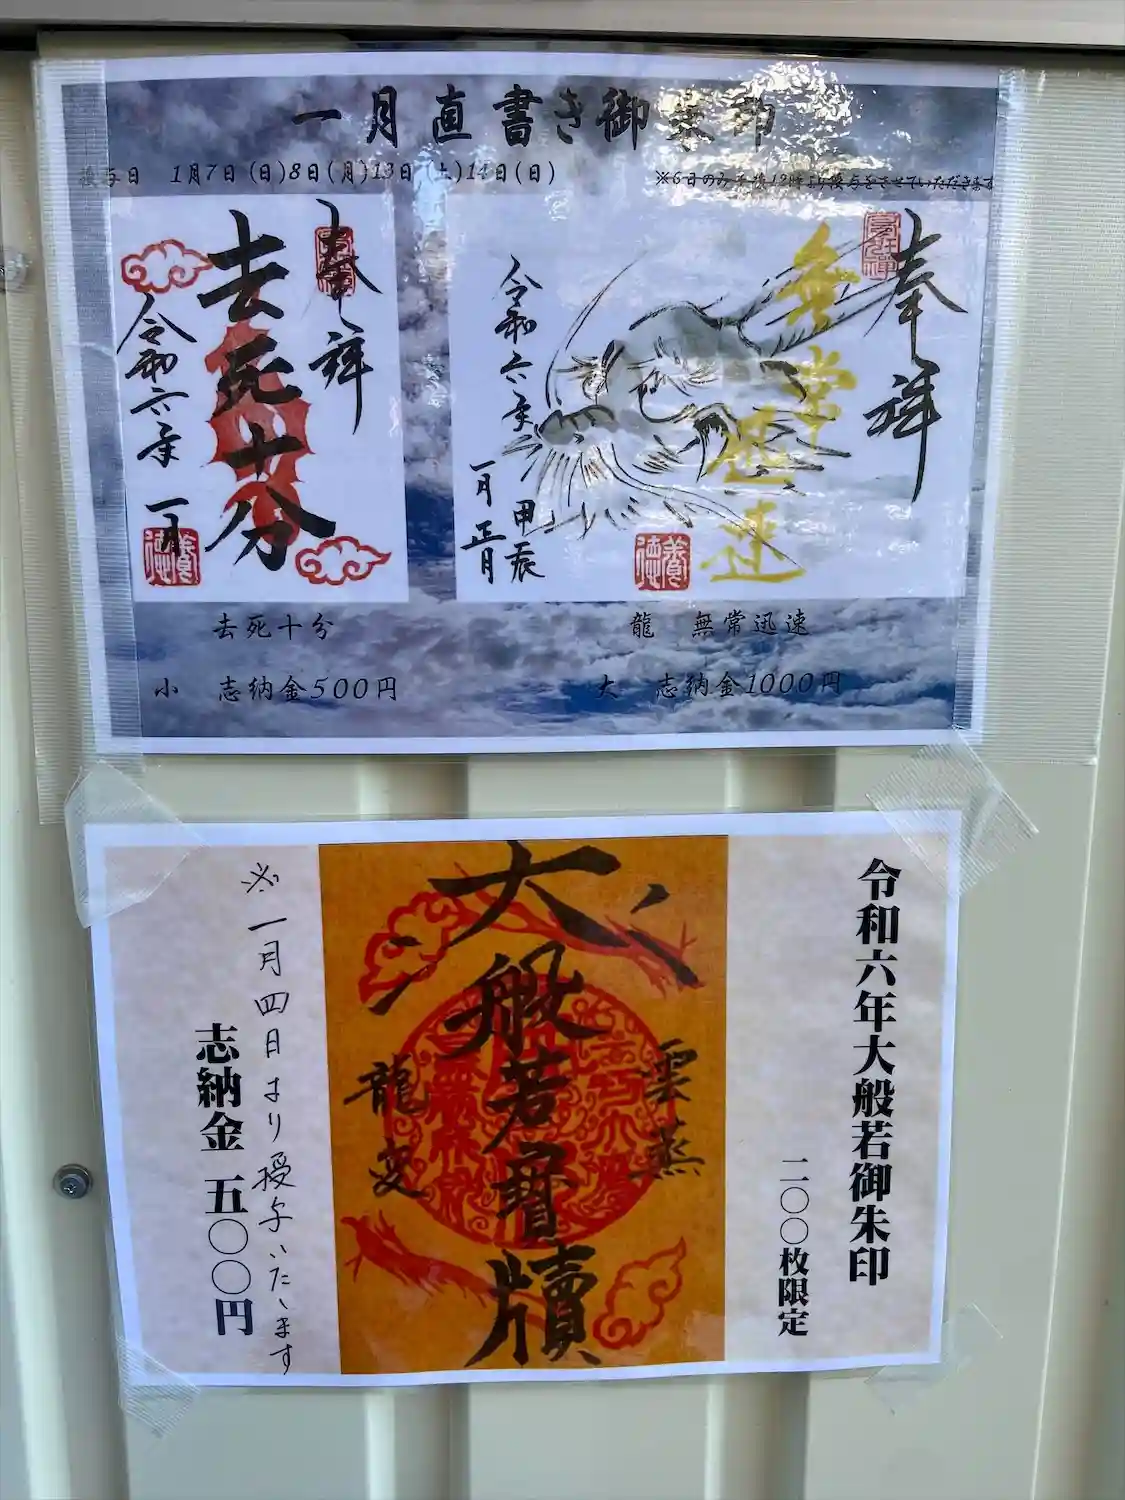 一月直書き御朱印
授与日 1月7日(日)8日(月)13日(土)14日(日)
※6日のみ午後12時より授与をさせていただきます
奉祥
去死十分
令和六年
一月
養徳
奉祥
無常迅速
令和六年
甲辰
一月正月
養徳
去死十分
小 志納金500円
龍 無常迅速
大 志納金1000円
令和六年大般若御朱印
二〇〇枚限定
雲蒸
大般若寶牘
龍変
※一月四日より授与いたします
志納金 五〇〇円